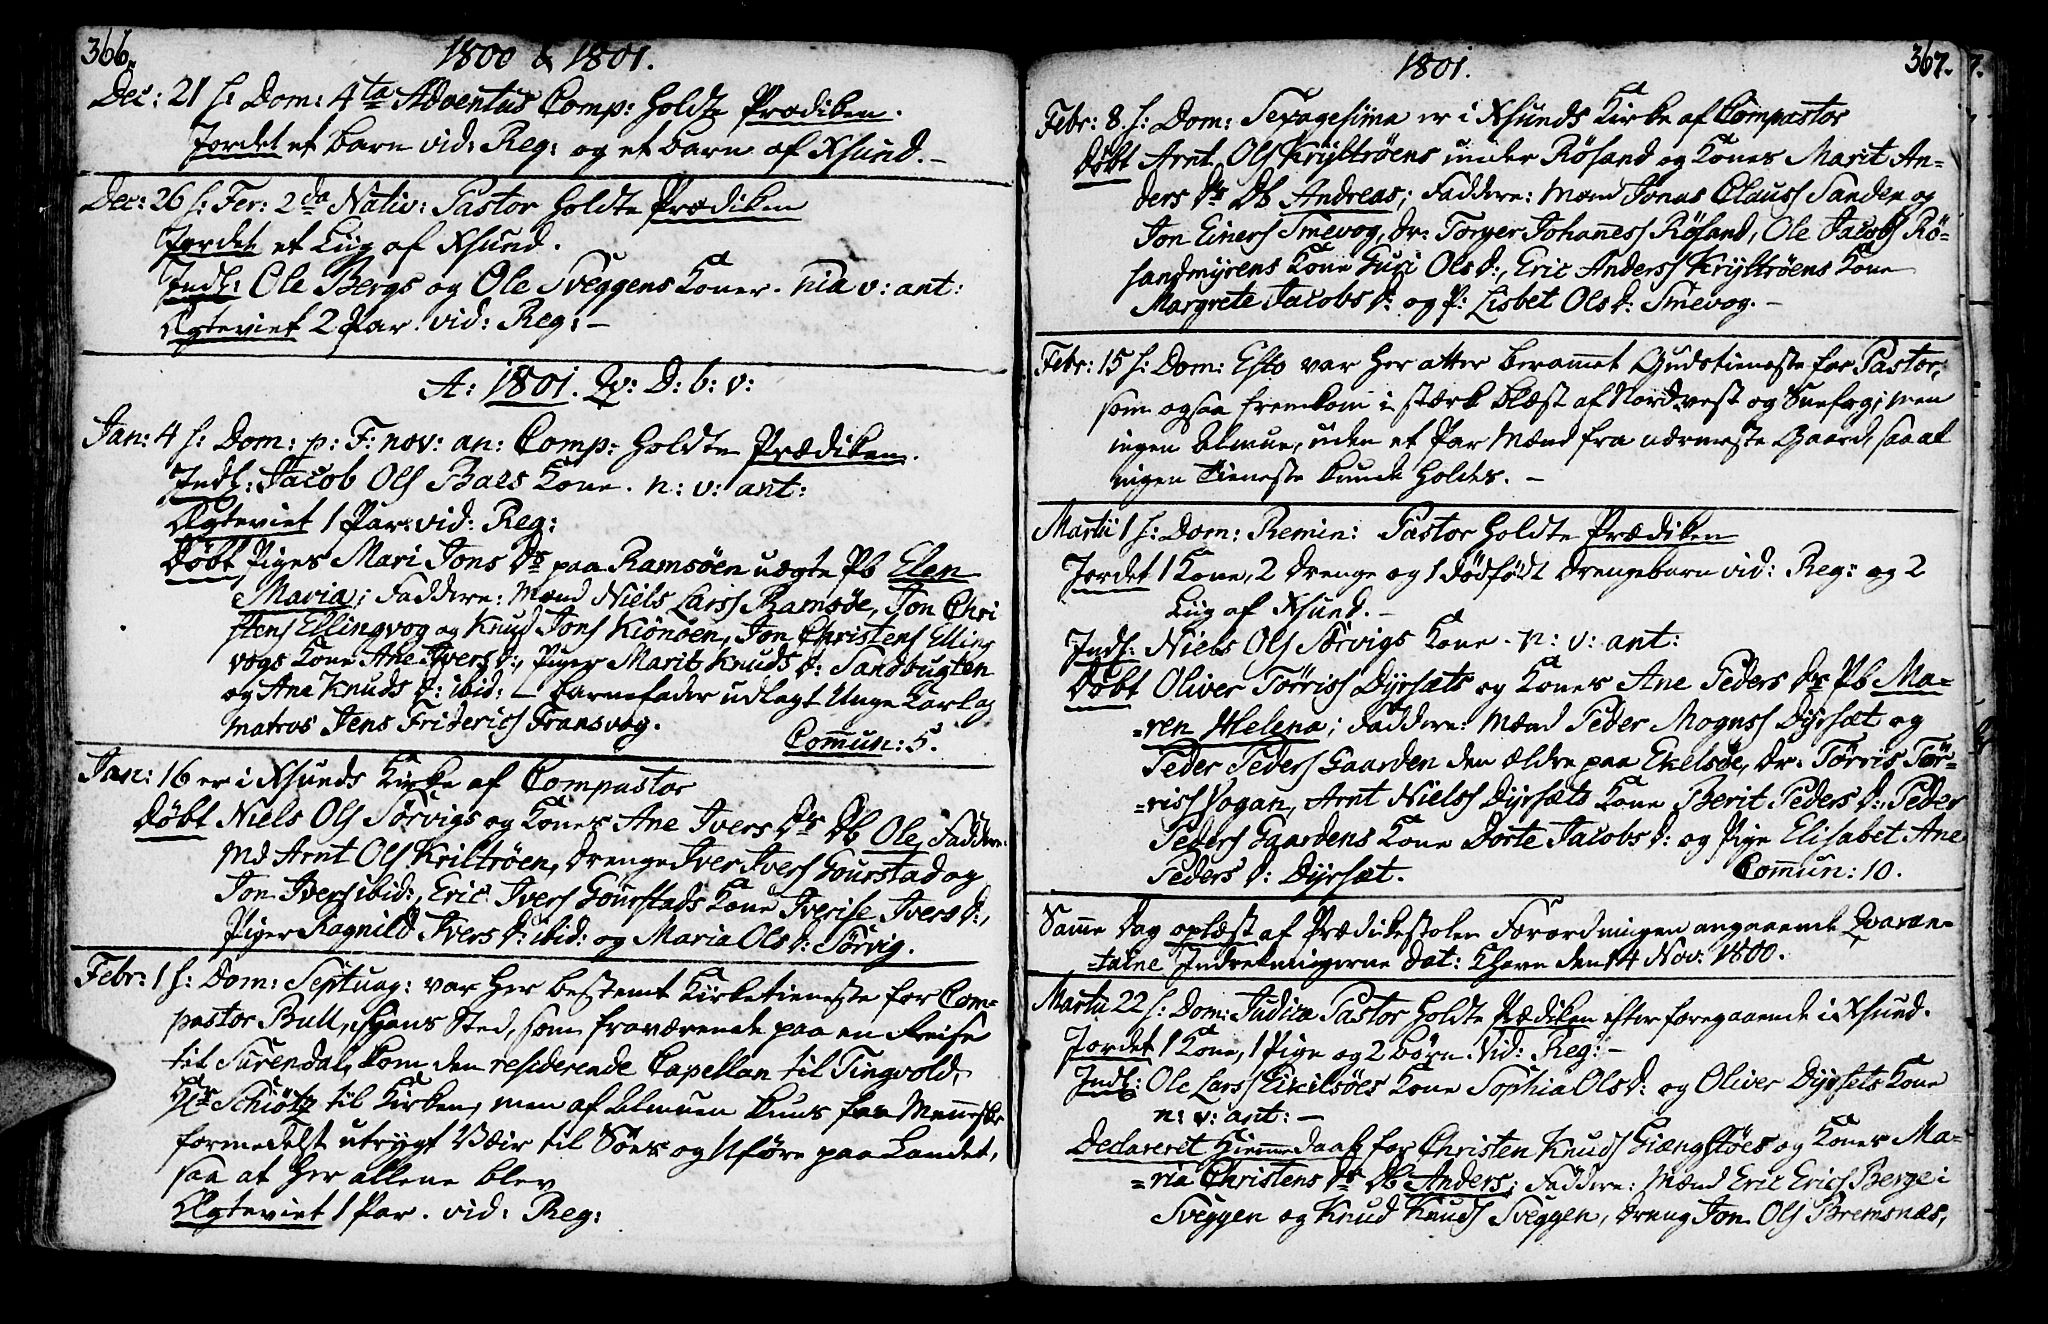 366.
1800 & 1801.
Dec: 21 h: Dom: 4ta Adventus Comp: holdte Prædiken.
Jordet et barn vid: Reg: og et barn af Xsund. –
Dec: 26 h: Fer: 2da Nativ: Pastor holdte Prædiken
Jordet et Liig af Xsund.
Indl: Ole Bergs og Ole Sveggens Koner. nia v: ant:
Ægteviet 2 Par. vid: Reg: –
A: 1801. Qv: D: b: v:
Jan: 4 h: Dom: p: F: nov: an: Comp: holdte Prædiken.
Indl: Jacob Ols Baes Kone. n: v: ant:
Ægteviet 1 Par. vid: Reg:
Døbt Piges Mari Jons Dr paa Ramsøen uægte Pb Elen
Maria; Faddere: Mænd Niels Larss Ramsøe, Jon Chri
stens Ellingvog og Knud Jons Kiønøen, Jon Christens Elling
vogs Kone Ane Ivers d:, Piger Marit Knuds d: Sandbugten
og Ane Knuds d: ibid: – Barnefader udlagt Unge Karl og
Matros Jens Friderichs Fransvog.
Commun: 5.
Jan: 16 er i Xsunds Kirke af Compastor
Døbt Niels Ols Sørvigs og Kones Ane Ivers Dr Db Ole, Faddere:
Md Arnt Ols Kriltrøen, Drenge Iver Ivers Gourstad og
Jon Ivers ibid:, Eric Ivers Gourstads Kone Iverise Ivers d:,
Piger Ragnild Ivers d: ibid: og Maria Ols d: Sørvig.
Febr: 1 h: Dom: Septuag: var her bestemt Kirketieneste for Com-
pastor Bull, i hans Sted, som fraværende paa en Reise
til Surendal, kom den residerende Capellan til Tingvold,
Hr Schiøtz til Kirken, men af Almuen kuns faa Mennesker
formedelst utrygt Veir til Søes og Uføre paa Landet,
saa at her allene blev
Ægteviet 1 Par. vid: Reg:
1801.
367.
Febr: 8. h: Dom: Sexagesima er i Xsunds Kirke af Compastor
Døbt Arnt Ols Kryltrøens under Røsand og Kones Marit An-
ders Dr Db Andreas; Faddere: Mænd Jonas Clauss Sanden og
Jon Einers Smevog, Dr: Torger Johaness Røsand, Ole Jacobs Rø-
sandmyrens Kone Guri Ols d:, Eric Anderss Kryltrøens Kone
Margrete Jacobs d: og P: Lisbet Ols d: Smevog. –
Febr: 15 h: Dom: Esto var her atter beramet Gudstieneste for Pastor,
som ogsaa fremkom i stærk Blæst af Nordvest og Sneefog; men
ingen Almue, uden et Par Mænd fra nærmeste Gaard, saa at
ingen Tieneste kunde holdes. –
Martii 1 h: Dom: Remin: Pastor holdte Prædiken
Jordet 1 Kone, 2 Drenge og 1 dødfødt Drengebarn vid: Reg: og 2
Liig af Xsund. –
Indl: Niels Ols Sørvigs Kone. n: v: ant:
Døbt Oliver Tørriss Dyrsæts og Kones Ane Peders Dr Pb Ma-
-ren Helena; Faddere: Mænd Peder Mognss Dyrsæt og
Peder Peders Gaarden den ældre paa Ekelsøe, Dr: Tørris Tør-
-riss Vogan, Arnt Nielss Dyrsæts Kone Berit Peders d:, Peder
Peders Gaardens Kone Dorte Jacobs d: og Pige Elisabet Ane
Peders d: Dyrsæt.
Commun: 10.
Samme Dag oplæst af Prædikestolen Forordningen angaaende Qvaran-
-taine Indretningerne dat: Khavn den 14 Nov: 1800.
Martii 22 h: Dom: Judica Pastor holdte Prædiken efter foregaaende i Xsund.
Jordet 1 Kone, 1 Pige og 2 børn. vid: Reg: –
Indl: Ole Larss Ekelsøes Kone Sophia Ols d: og Oliver Dyrsets Kone
n: v: ant: –
Declareret Hiemme daab for Christen Knuds Giengstøes og Kones Ma-
-ria Christens Dr Db Anders; Faddere: Mænd Eric Erics Berge i
Sveggen og Knud Knuds Sveggen, Dreng Jon Ols Bremsnæs,